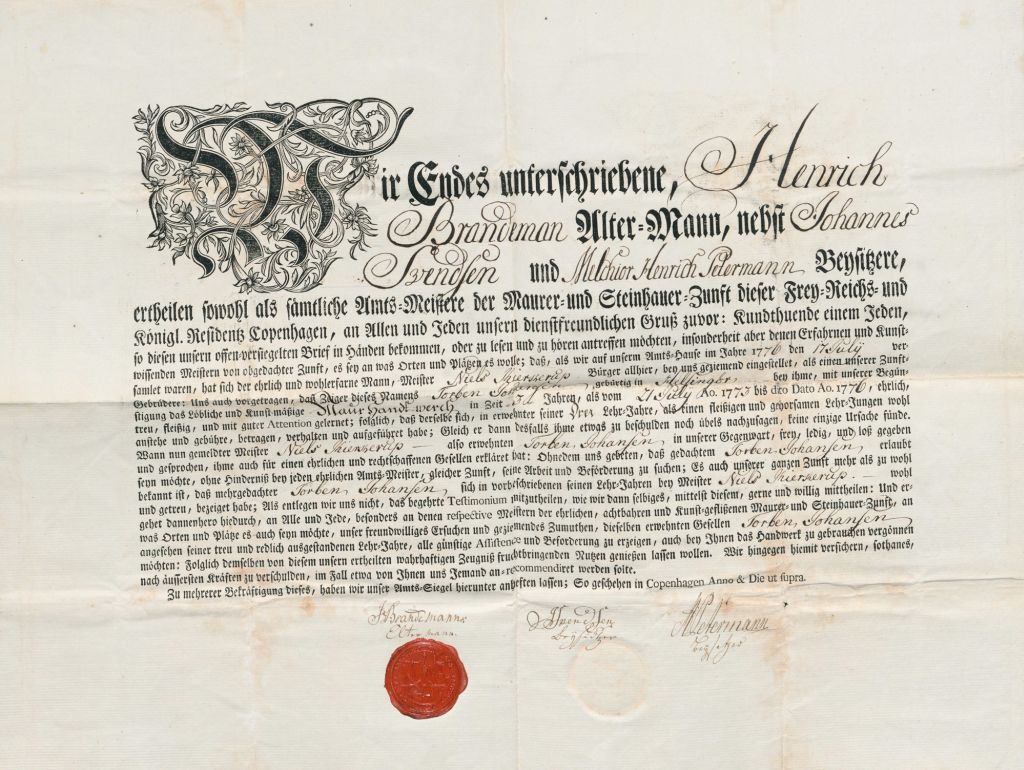 Wir Endes unterschriebene, Henrich
Brandeman Alter-Mann, nebst Johannes
Svendsen und Melchior Henrich Petermann Beysitzere,
ertheilen sowohl als sämtliche Amts-Meistere der Maurer- und Steinhauer-Zunft dieser Frey-Reichs- und
Königl. Residentz Copenhagen, an Allen und Jeden unsern dienstfreundlichen Gruß zuvor: Kundthuende einem Jeden,
so diesen unsern offen-versiegelten Brief in Händen bekommen, oder zu lesen und zu hören antreffen möchten, insonderheit aber denen Erfahrnen und Kunst-
wissenden Meistern von obgedachter Zunft, es sey an was Orten und Plätzen es wolle; daß, als wir auf unserm Amts-Hause im Jahre 1776 den 17 July ver-
samlet waren, hat sich der ehrlich und wohlerfarne Mann, Meister Niels Bürger allhier, bey uns geziemend eingestellet, als einen unserer Zunft-
Gebrüder: Uns auch vorgetragen, daß Zeiger dieses Namens Torben gebürtig in Helsingør bey ihme, mit unser Begün-
stigung das Löbliche und Kunst-mäßige Maur handt werch in Zeit 3 Jahren, als vom 21 July Ao. 1773 bis dito Dato Ao. 1776, ehrlich,
treu, fleißig, und mit guter Attention gelernet; folglich, daß derselbe sich, in erwehnter seiner Drey Lehr-Jahre, als einen fleißigen und gehorsamen Lehr-Jungen wohl
anstehe und gebühre, betragen, verhalten und aufgeführet habe; Gleich er dann desfalls ihme etwas zu beschylden noch übels nachzusagen, keine einzige Ursache fünde.
Wann nun gemeldter Meister Niels also erwehnten Torben Johansen in unserer Gegenwart, frey, ledig, und loß gegeben
und gesprochen, ihme auch für einen ehrlichen und rechtschaffenen Gesellen erkläret hat: Ohnedem uns gebeten, daß gedachtem Torben Johansen erlaubt
seyn möchte, ohne Hinderniß bey jeden ehrlichen Amts-Meister, gleicher Zunft, seine Arbeit und Beförderung zu suchen; Es auch unserer ganzen Zunft mehr als zu wohl
bekannt ist, daß mehrgedachter Torben Johansen sich in vorbeschriebenen seinen Lehr-Jahren bey Meister Niels wohl
und getreu, bezeiget habe; Als entlegen wir uns nicht, das begehrte Testimonium mitzutheilen, wie wir dann selbiges, mittelst diesem, gerne und willig mittheilen: Und er-
gehet dannenhero hiedurch, an Alle und Jede, besonders an denen respective Meistern der ehrlichen, achtbahren und Kunst-geflißenen Maurer- und Steinhauer-Zunft, an
was Orten und Plätze es auch seyn möchte, unser freundwilliges Ersuchen und geziemendes Zumuthen, dieselben erwehnten Gesellen Torben Johansen
angesehen seiner treu und redlich ausgestandenen Lehr-Jahre, alle günstige Assistence und Beforderung zu erzeigen, auch bey Ihnen das Handwerk zu gebrauchen vergönnen
möchten: Folglich demselben von diesem unsern ertheilten wahrhaftigen Zeugniß fruchtbringenden Nutzen genießen lassen wollen. Wir hingegen hiemit versichern, sothanes,
nach äussersten Kräften zu verschulden, im Fall etwa von Ihnen uns Jemand an-recommendiret werden solte.
Zu mehrerer Bekräftigung dieses, haben wir unser Amts-Siegel hierunter anheften lassen; So geschehen in Copenhagen Anno & Die ut supra.
Brandemann Svendsen Petermann
Elter mann. beysitzer beysitzer